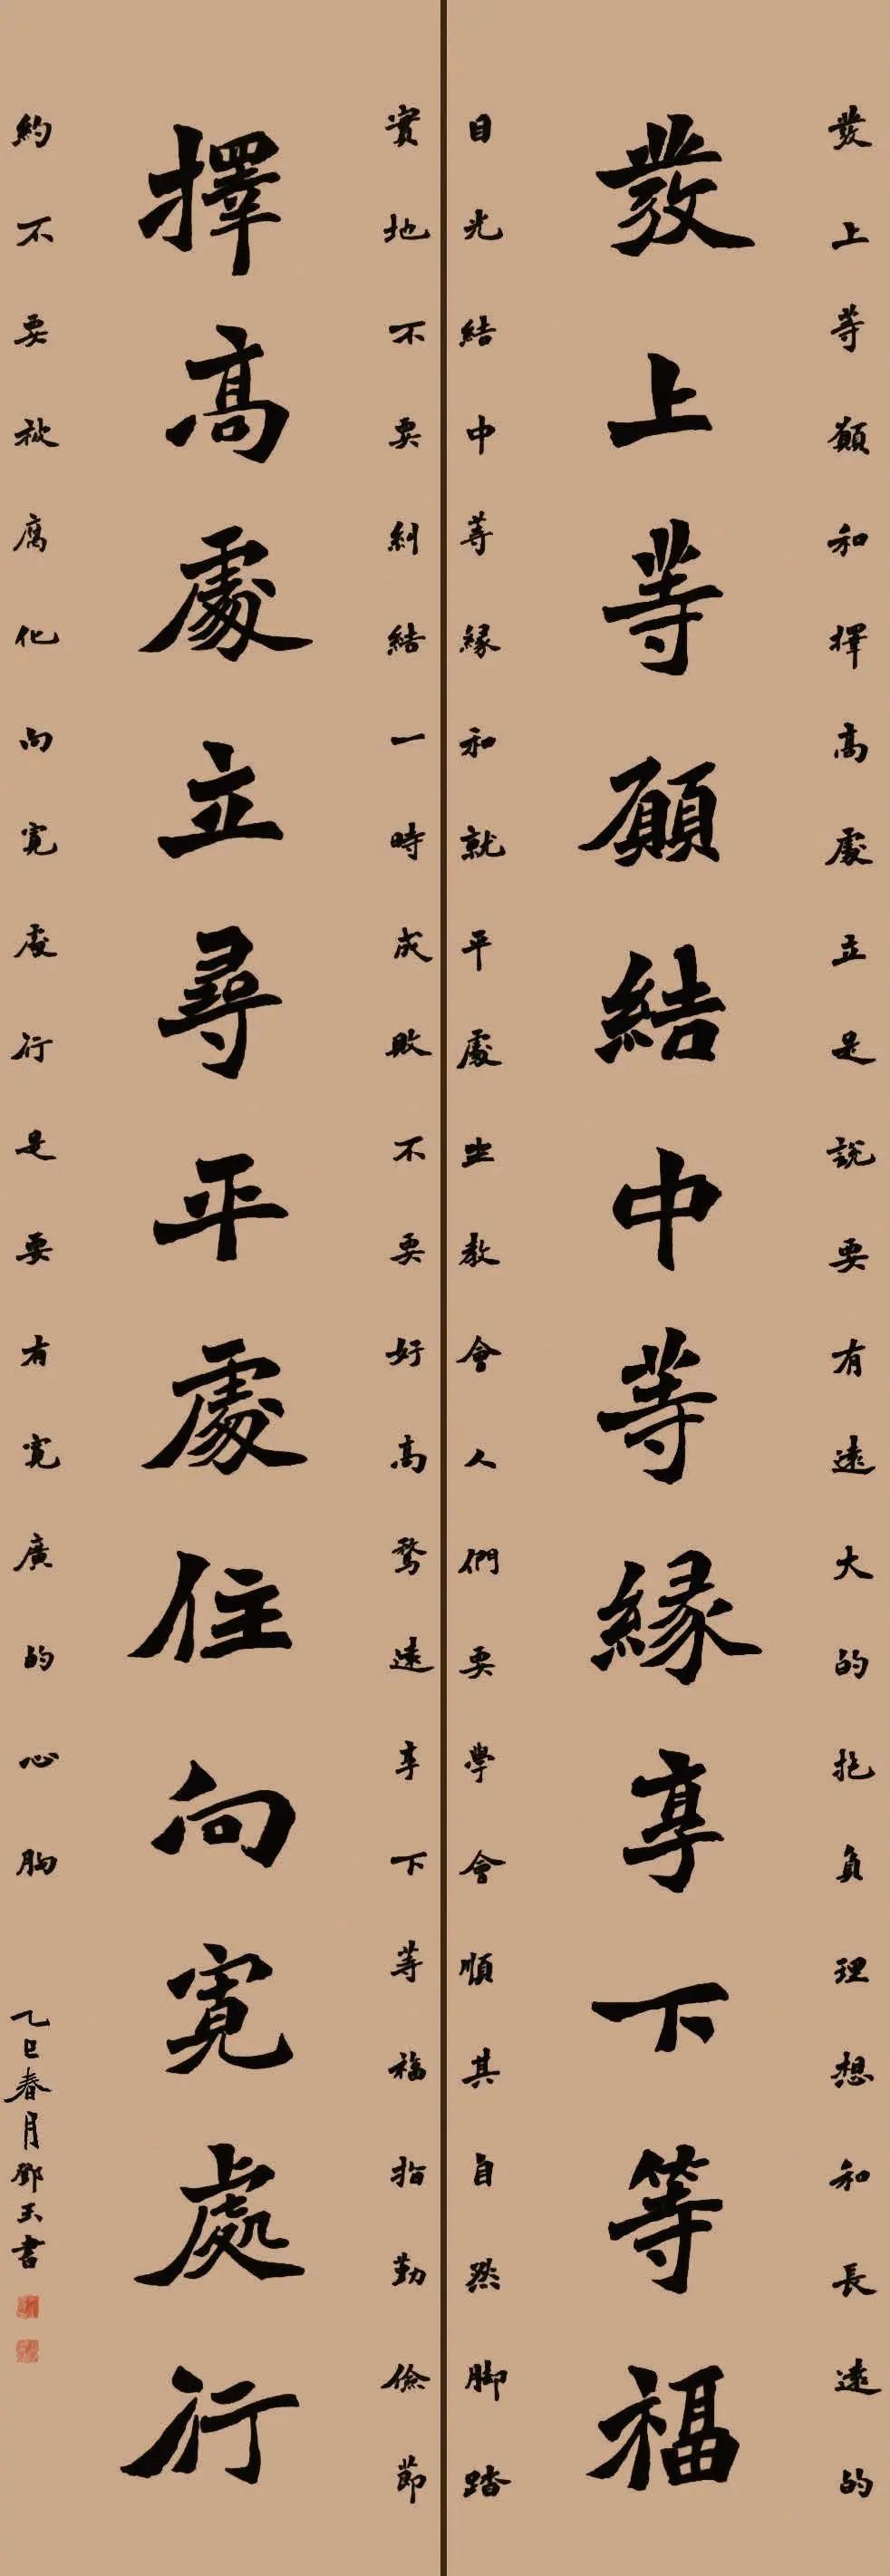 發上等願結中等緣享下等福
擇高處立尋平處住向寬處行
發上等願和擇高處立是說要有遠大的抱負理想和長遠的
目光結中等緣和就平處坐教會人們要學會順其自然脚踏
實地不要糾結一時成敗不要好高騖遠享下等福指勤儉節
約不要被腐化向寬處行是要有寬廣的心胸
乙巳春月鄧玉書